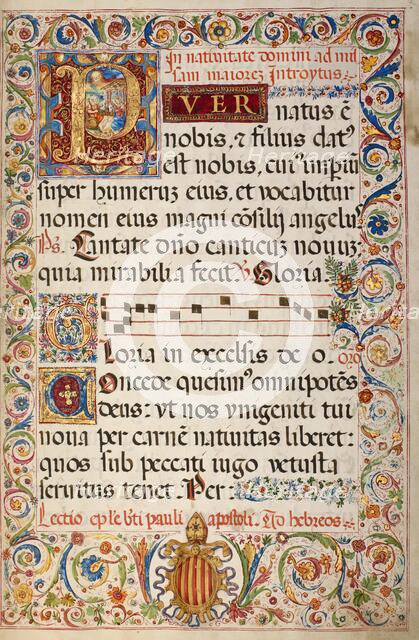 In nativitate domini ad mis
sam maiorez Introytus
PVER
natus ē
nobis, ⁊ filius dat⁹
est nobis, cui⁹ impiū
super humeruz eius, et vocabitur
nomen eius magni cōsilij angelu⁹
Ps. Cantate dn̄o canticuz nouuz
quia mirabilia fecit. ℣ Gloria.
Gloria in excelsis de o.
oro
Concede quesum⁹ omnipotēs
deus: vt nos vnigeniti tui
noua per carnē natiuitas liberet:
quos sub peccati iugo vetusta
seruitus tenet. Per:
Lectio ep̄le bt̄i pauli apostoli. Ad hebreos